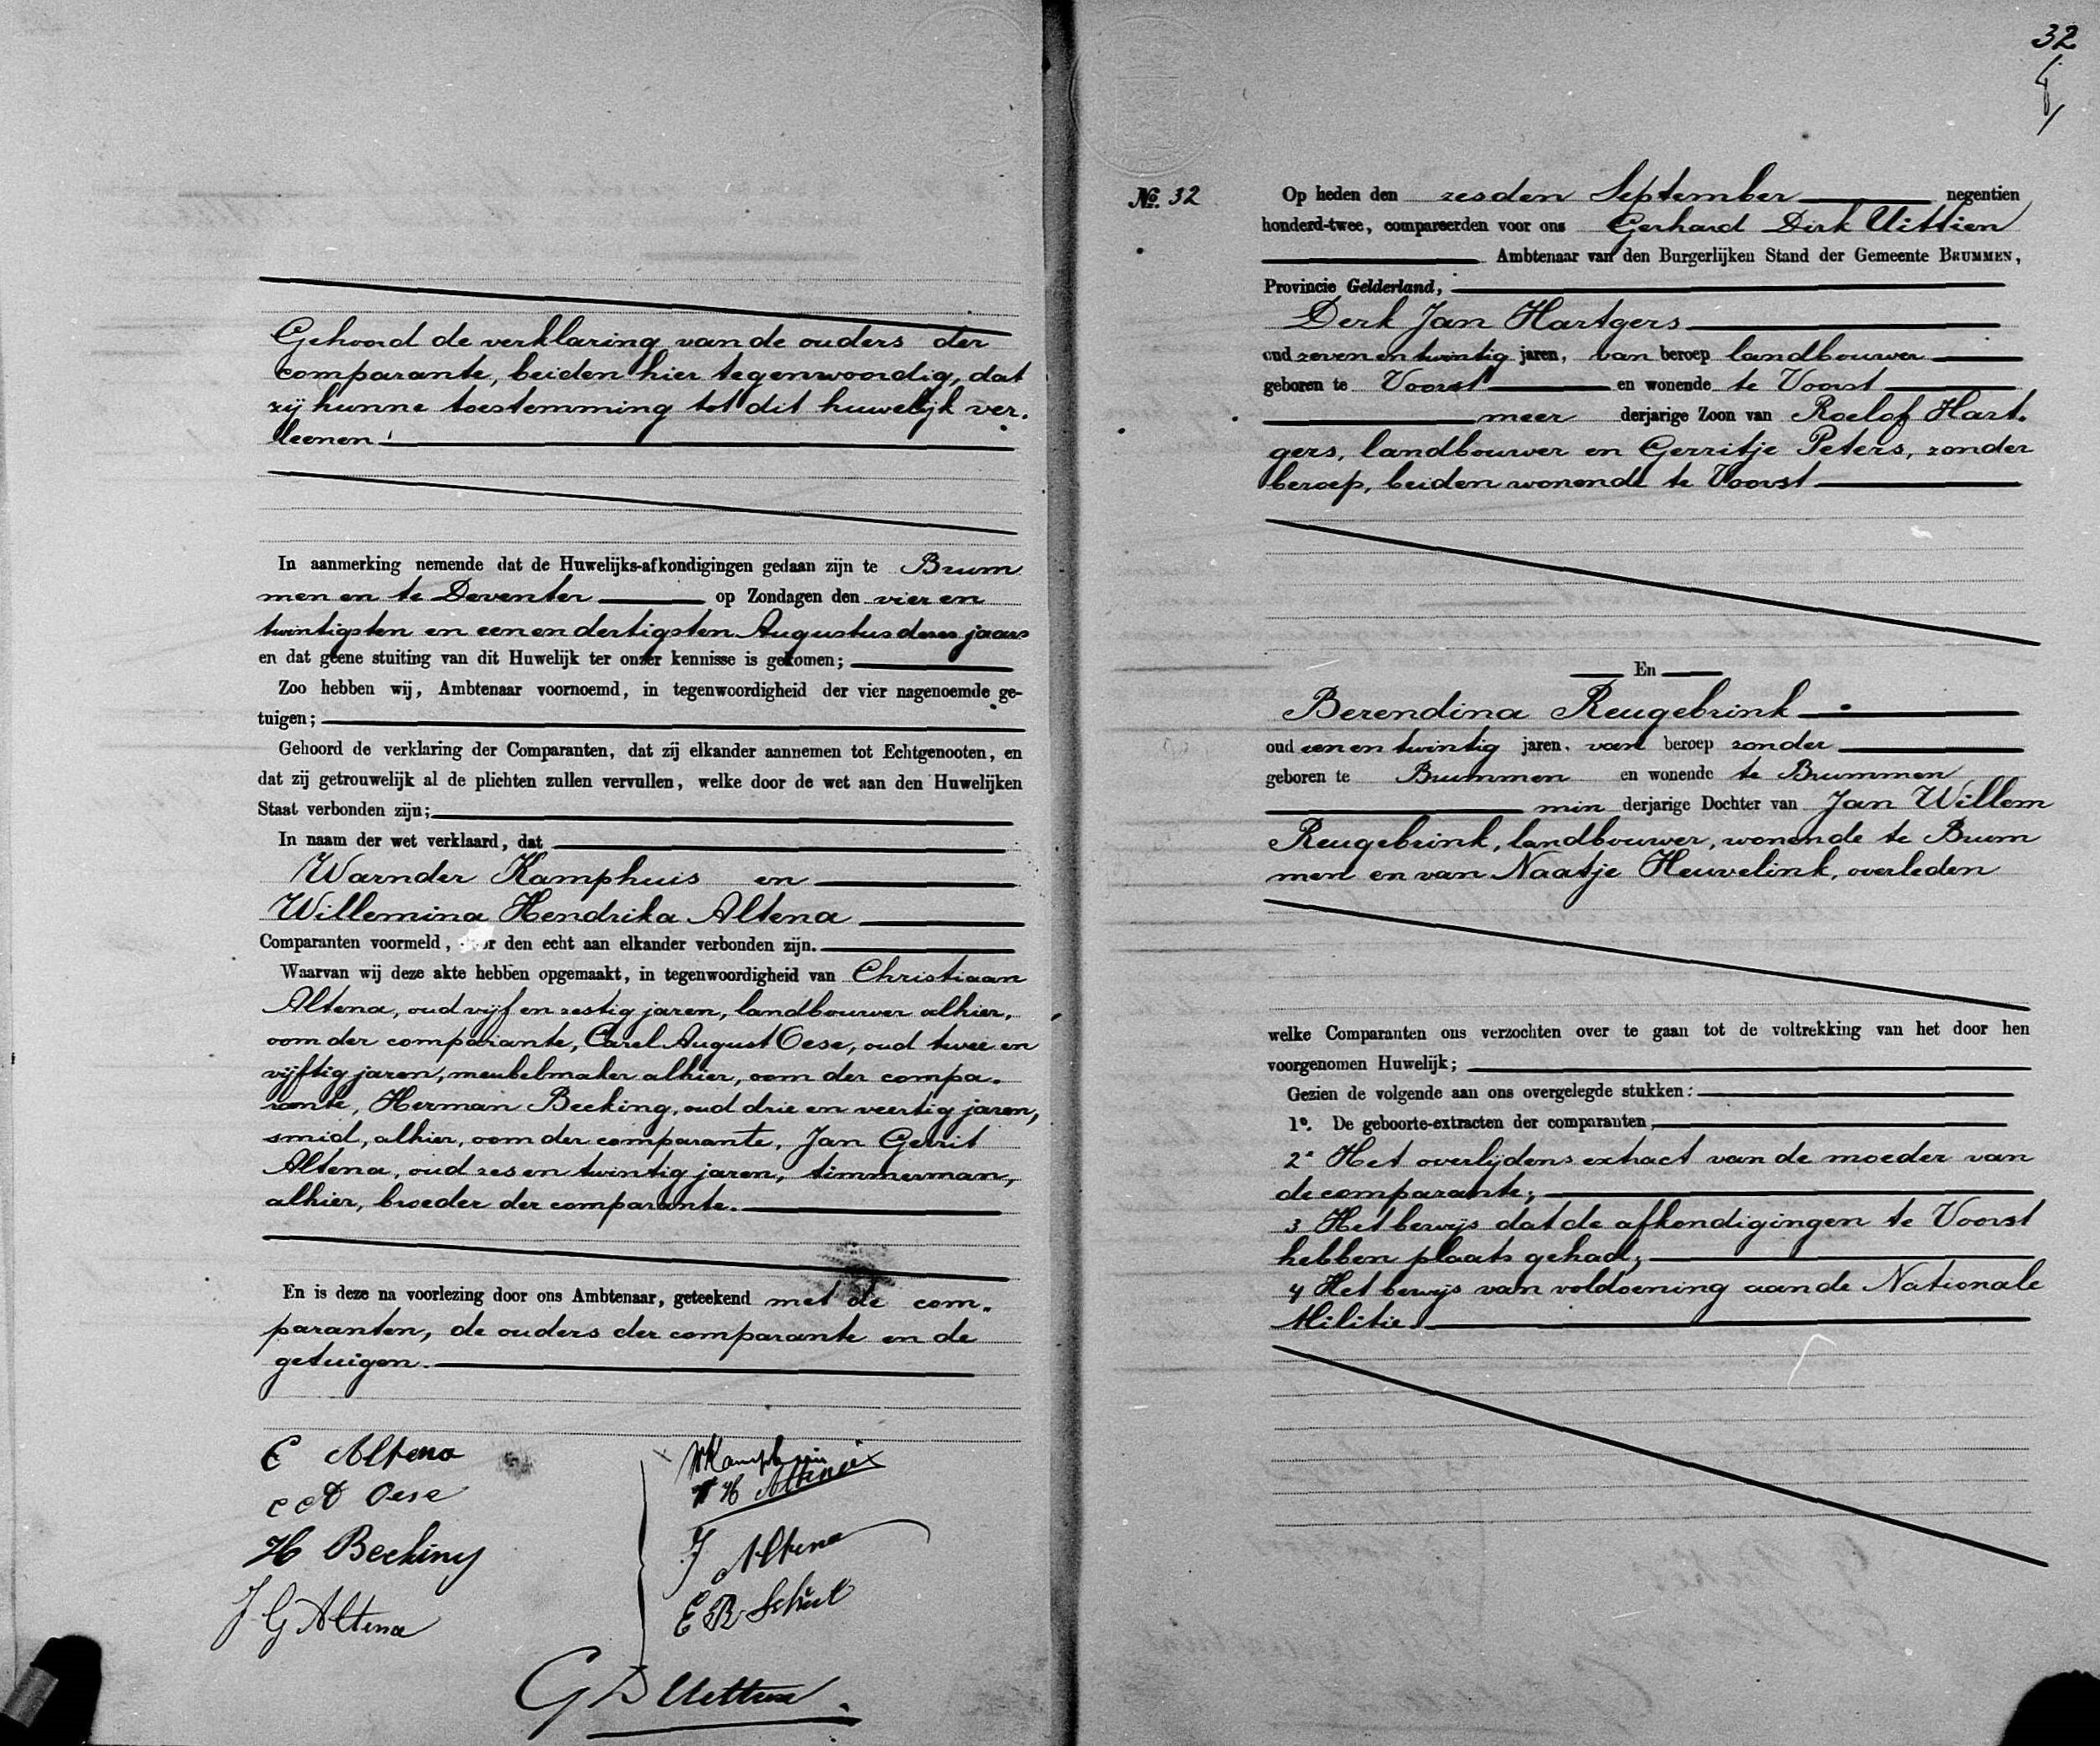 Gehoord de verklaring van de ouders der
comparante, beiden hier tegenwoordig, dat
zij hunne toestemming tot dit huwelijk ver-
leenen.
In aanmerking nemende dat de Huwelijks-afkondigingen gedaan zijn te Brum
men en te Deventer op Zondagen den vier en
twintigsten en een en dertigsten Augustus dezes jaars
en dat geene stuiting van dit Huwelijk ter onzer kennisse is gekomen;
Zoo hebben wij, Ambtenaar voornoemd, in tegenwoordigheid der vier nagenoemde ge-
tuigen;
Gehoord de verklaring der Comparanten, dat zij elkander aannemen tot Echtgenooten, en
dat zij getrouwelijk al de plichten zullen vervullen, welke door de wet aan den Huwelijken
Staat verbonden zijn;
In naam der wet verklaard, dat
Warnder Kamphuis en
Willemina Hendrika Altena
Comparanten voormeld, door den echt aan elkander verbonden zijn.
Waarvan wij deze akte hebben opgemaakt, in tegenwoordigheid van Christiaan
Altena, oud vijf en zestig jaren, landbouwer alhier,
oom der comparante, Carel August Oese, oud twee en
vijftig jaren, meubelmaker alhier, oom der compa-
rante, Herman Becking, oud drie en veertig jaren,
smid, alhier, oom der comparante, Jan Gerrit
Altena, oud zes en twintig jaren, timmerman,
alhier, broeder der comparante.
En is deze na voorlezing door ons Ambtenaar, geteekend met de com-
paranten, de ouders der comparante en de
getuigen.
C Altena
C A Oese
H Becking
J G Altena
W Kamphuis
W H Altena
J Altena
E B Schut
G D Uittien
32
No. 32
Op heden den zesden September negentien
honderd-twee, compareerden voor ons Gerhard Dirk Uittien
Ambtenaar van den Burgerlijken Stand der Gemeente BRUMMEN,
Provincie Gelderland,
Derk Jan Hartgers
oud zeven en twintig jaren, van beroep landbouwer
geboren te Voorst en wonende te Voorst
meer derjarige Zoon van Roelof Hart-
gers, landbouwer en Gerritje Peters, zonder
beroep, beiden wonende te Voorst
En
Berendina Reugebrink
oud een en twintig jaren, van beroep zonder
geboren te Brummen en wonende te Brummen
min derjarige Dochter van Jan Willem
Reugebrink, landbouwer, wonende te Brum
men en van Naatje Heuvelink, overleden
welke Comparanten ons verzochten over te gaan tot de voltrekking van het door hen
voorgenomen Huwelijk;
Gezien de volgende aan ons overgelegde stukken:
1°. De geboorte-extracten der comparanten,
2° Het overlijdens extract van de moeder van
de comparante;
3 Het bewijs dat de afkondigingen te Voorst
hebben plaats gehad;
4 Het bewijs van voldoening aan de Nationale
Militie.